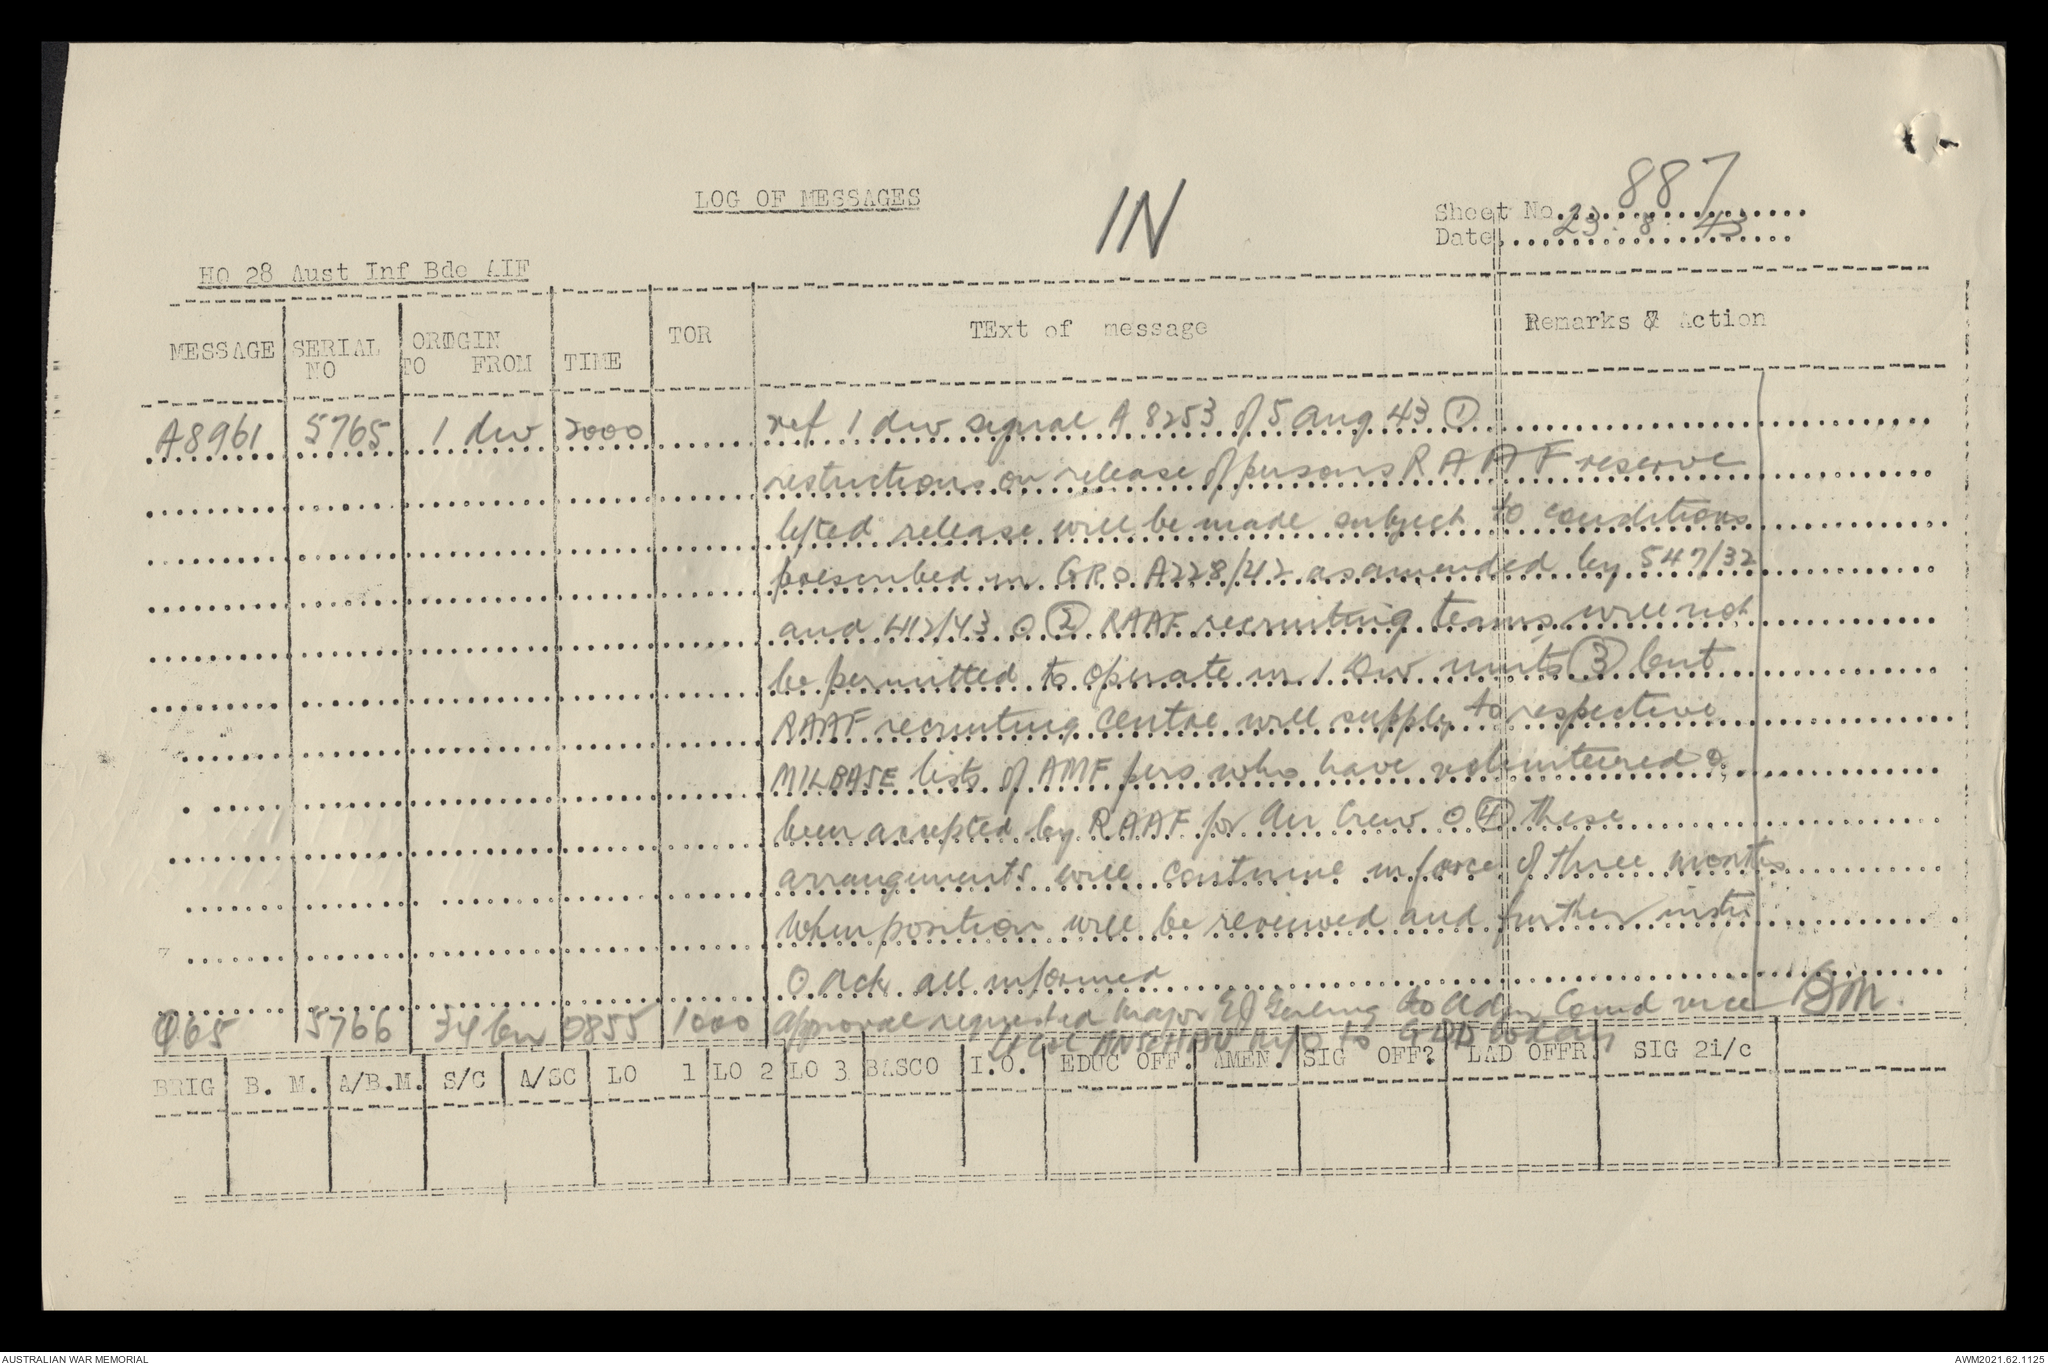 LOG OF MESSAGES
IN
887
Sheet No
Date 23.8.43
HQ 28 Aust Inf Bde AIF
MESSAGE SERIAL NO ORIGIN TO FROM TIME TOR TExt of message Remarks & Action
A8961 5765 1 div 2000 ref 1 div signal A 8253 of 5 Aug 43 (1)
restrictions on release of persons RAAF reserve
lifted release will be made subject to conditions
prescribed in GRO A228/42 as amended by 547/32
and 412/43 O (2) RAAF recruiting teams will not
be permitted to operate in 1 Div units (3) but
RAAF recruiting centre will supply to respective
MILBASE lists of AMF pers who have volunteered &
been accepted by RAAF for Air Crew O (4) these
arrangements will continue in force of three months
when position will be reviewed and further instr
O Ack all informed
O65 5766 34 bn 0855 1000 Approval requested Major EJ to Adm Comd vice
to GDD
BRIG B. M. A/B.M. S/C A/SC LO 1 LO 2 LO 3 BASCO I.O. EDUC OFF. AMEN. SIG OFF? LAD OFFR SIG 2i/c
AUSTRALIAN WAR MEMORIAL
AWM2021.62.1125